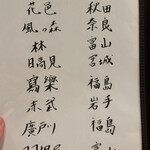 花邑 秋田
風の森 奈良
林 富山
日高見 宮城
寫樂 福島
赤武 岩手
廣戸川 福島